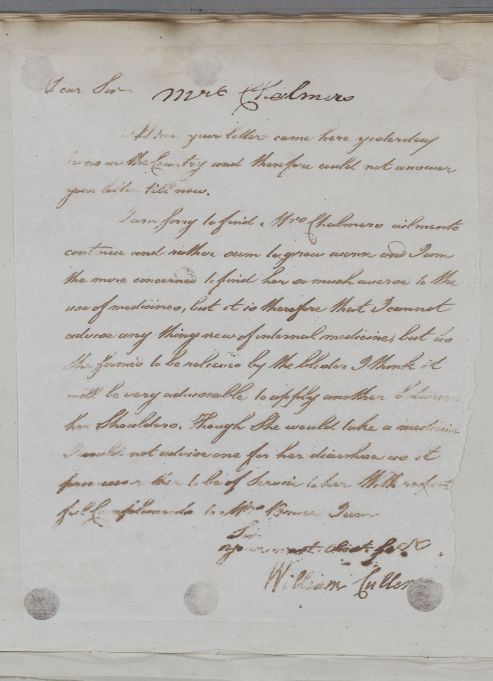 Dear Sir
Mrs Chalmers
When your letter came here yesterday
I was in the Country and therefore could not answer
your letter till now.
I am sorry to find Mrs Chalmers ailments
continue and rather seem to grow worse and I am
the more concerned to find her so much averse to the
use of medicines, but it is therefore that I cannot
advise any thing new of internal medicine, but as
she seemed to be relieved by the blister I think it
will be very adviseable to apply another between
her Shoulders. Though She would take a medicine
I would not advise one for her diarrhea as it
rather to be of Service to her With respect
full Compliments to Mrs Bruce I am
Sir
your most obedt
William Cullen